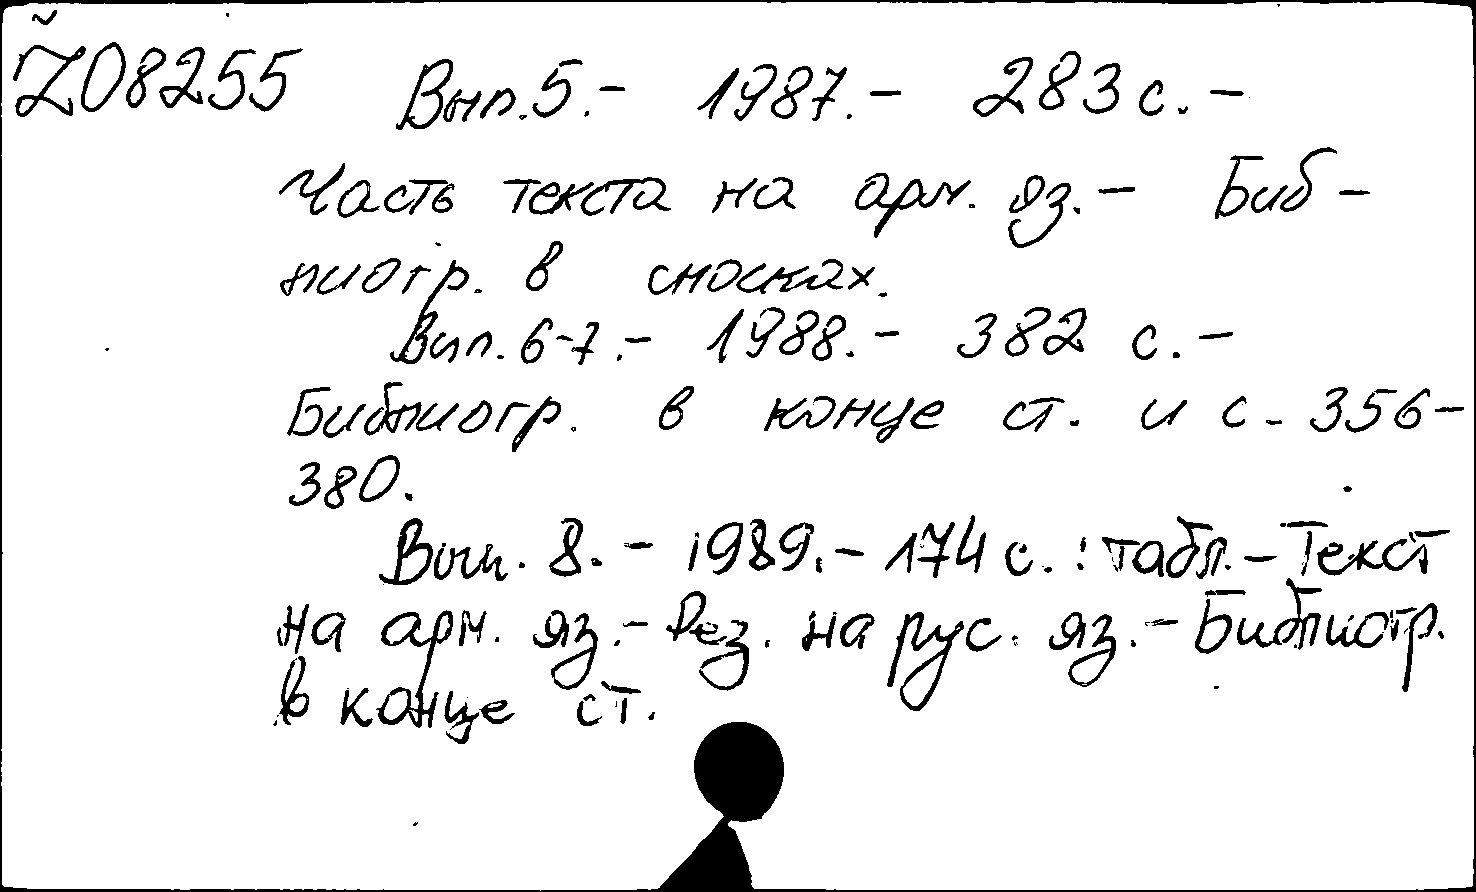 Ž08255 Вып. 5. - 1987. - 283 с. -
Часть текста на арм. яз. - Биб-
лиогр. в сносках.
Вып. 6-7. - 1988. - 382 с. -
Библиогр. в конце ст. и с. 356-
380.
Вып. 8. - 1989. - 174 с. : табл. - Текст
на арм. яз. - Рез. на рус. яз. - Библиогр.
в конце ст.